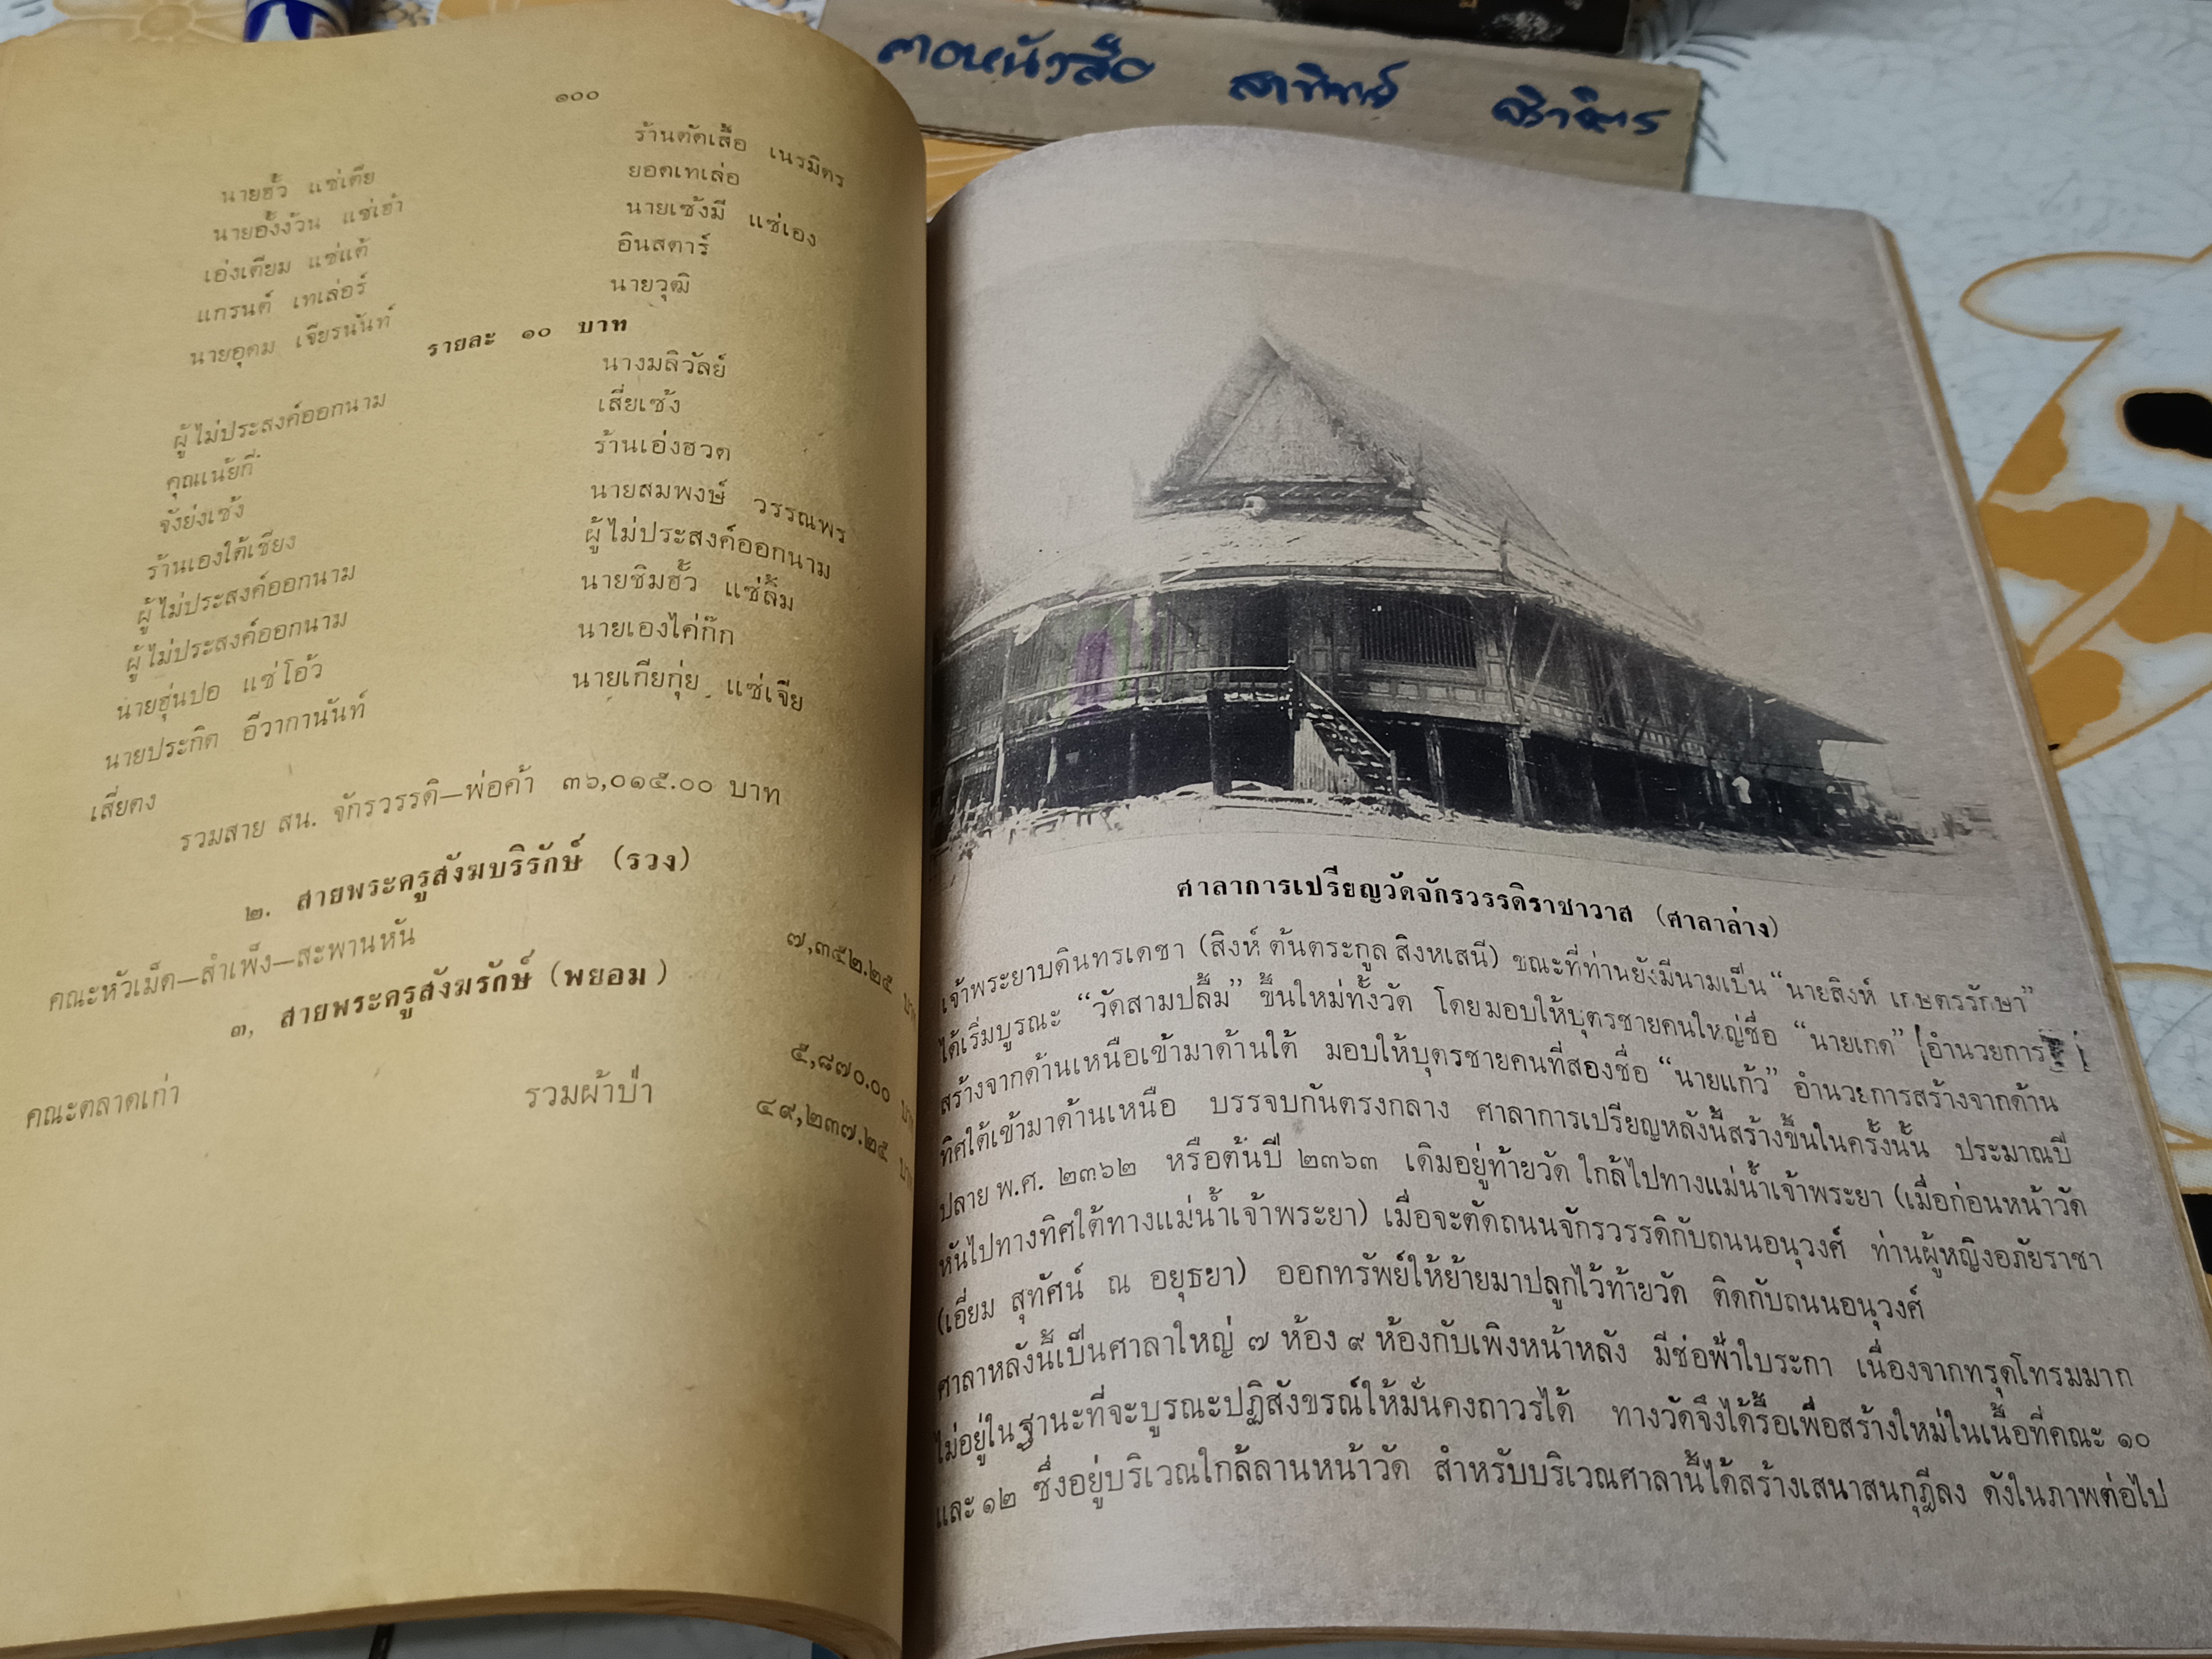 ๑๐๐
ร้านตัดเสื้อ เนรมิตร
นายฮั้ว แซ่เตีย
ยอดเทเล่อ
นายอั้งง้วน แซ่เฮ้า
นายเซ้งมี แซ่เอง
เอ่งเตียม แซ่แต้
อินสตาร์
แกรนต์ เทเล่อร์
นายวุฒิ
นายอุดม เจียรนันท์
รายละ ๑๐ บาท
ผู้ไม่ประสงค์ออกนาม
นางมลิวัลย์
คุณแน้ยกี่
เสี่ยเซ้ง
จั้งย่งเซ้ง
ร้านเอ่งฮวด
ร้านเองใต้เชียง
นายสมพงษ์ วรรณพร
ผู้ไม่ประสงค์ออกนาม
ผู้ไม่ประสงค์ออกนาม
ผู้ไม่ประสงค์ออกนาม
นายซิมฮั้ว แซ่ลิ้ม
นายฮุ่นปอ แซ่โอ้ว
นายเองไค่ก๊ก
นายประกิต อีวากานันท์
นายเกียกุ่ย แซ่เจีย
เสี่ยคง
รวมสาย สน. จักรวรรดิ—พ่อค้า ๓๖,๐๑๕.๐๐ บาท
๒. สายพระครูสังฆบริรักษ์ (รวง)
คณะหัวเม็ด—สำเพ็ง—สะพานหัน ๗,๓๕๒.๒๕
๓, สายพระครูสังฆรักษ์ (พยอม)
คณะตลาดเก่า ๕,๘๗๐.๐๐
รวมผ้าป่า ๔๙,๒๓๗.๒๕
ศาลาการเปรียญวัดจักรวรรดิราชาวาส (ศาลาล่าง)
เจ้าพระยาบดินทรเดชา (สิงห์ ต้นตระกูล สิงหเสนี) ขณะที่ท่านยังมีนามเป็น “นายสิงห์ เกษตรรักษา”
ได้เริ่มบูรณะ “วัดสามปลื้ม” ขึ้นใหม่ทั้งวัด โดยมอบให้บุตรชายคนใหญ่ชื่อ “นายเกด” อำนวยการ
สร้างจากด้านเหนือเข้ามาด้านใต้ มอบให้บุตรชายคนที่สองชื่อ “นายแก้ว” อำนวยการสร้างจากด้าน
ทิศใต้เข้ามาด้านเหนือ บรรจบกันตรงกลาง ศาลาการเปรียญหลังนี้สร้างขึ้นในครั้งนั้น ประมาณปี
ปลาย พ.ศ. ๒๓๖๒ หรือต้นปี ๒๓๖๓ เดิมอยู่ท้ายวัด ใกล้ไปทางแม่น้ำเจ้าพระยา (เมื่อก่อนหน้าวัด
หันไปทางทิศใต้ทางแม่น้ำเจ้าพระยา) เมื่อจะตัดถนนจักรวรรดิกับถนนอนุวงศ์ ท่านผู้หญิงอภัยราชา
(เอี่ยม สุทัศน์ ณ อยุธยา) ออกทรัพย์ให้ย้ายมาปลูกไว้ท้ายวัด ติดกับถนนอนุวงศ์
ศาลาหลังนี้เป็นศาลาใหญ่ ๗ ห้อง ๙ ห้องกับเพิงหน้าหลัง มีช่อฟ้าใบระกา เนื่องจากทรุดโทรมมาก
ไม่อยู่ในฐานะที่จะบูรณะปฏิสังขรณ์ให้มั่นคงถาวรได้ ทางวัดจึงได้รื้อเพื่อสร้างใหม่ในเนื้อที่คณะ ๑๐
และ ๑๒ ซึ่งอยู่บริเวณใกล้ลานหน้าวัด สำหรับบริเวณศาลานี้ได้สร้างเสนาสนกุฎีลง ดังในภาพต่อไป